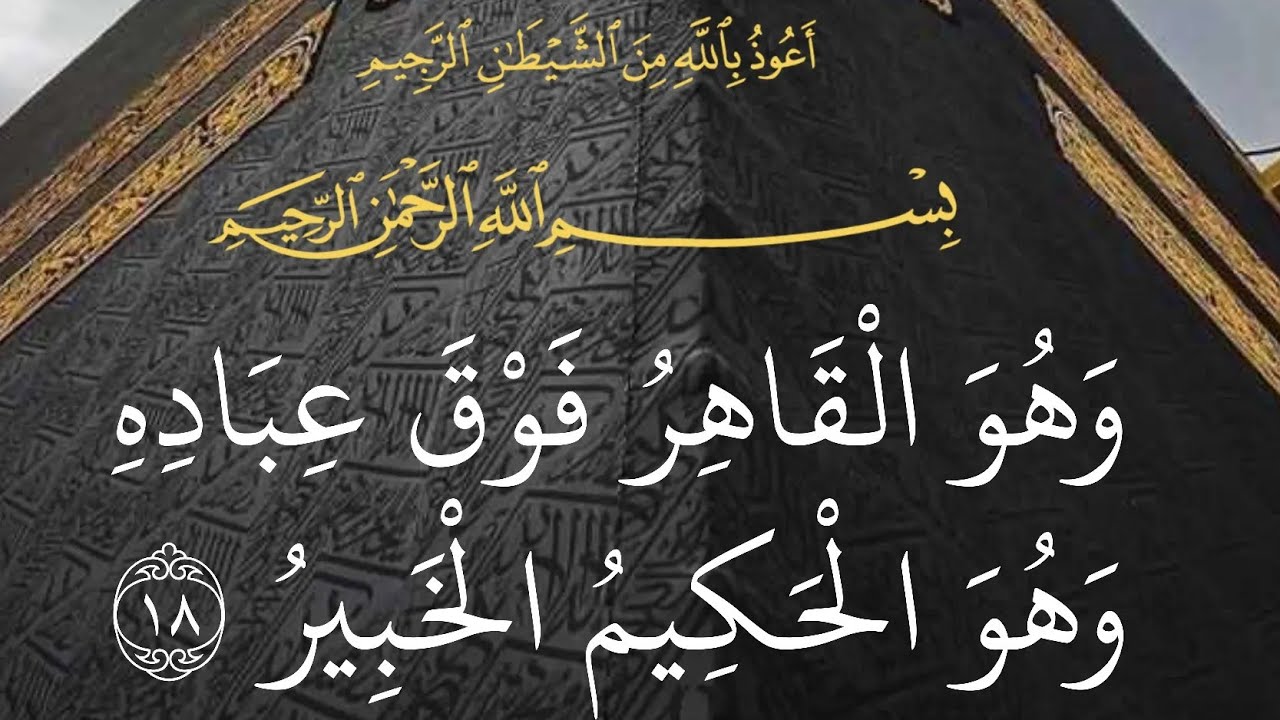 أَعُوذُ بِٱللَّهِ مِنَ ٱلشَّيْطَٰنِ ٱلرَّجِيمِ
بِسْمِ ٱللَّهِ ٱلرَّحْمَٰنِ ٱلرَّحِيمِ
وَهُوَ الْقَاهِرُ فَوْقَ عِبَادِهِ
وَهُوَ الْحَكِيمُ الْخَبِيرُ ١٨